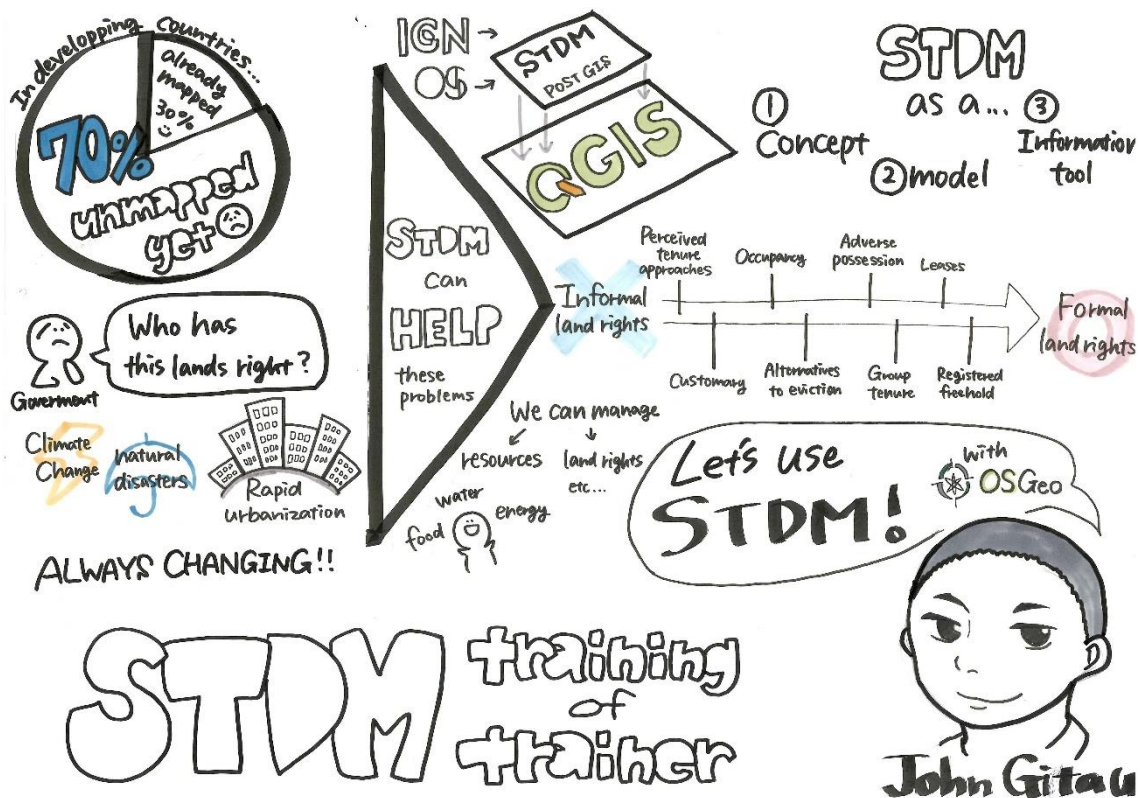 In developping countries...
already
mapped
30%
70%
unmapped
yet
Who has
this lands right?
Goverment
Climate
Change
natural
disasters
Rapid
urbanization
ALWAYS CHANGING!!
IGN
OS
STDM
POST GIS
QGIS
STDM
can
HELP
these
problems
STDM
as a...
① Concept
② model
③ Information
tool
Informal
land rights
Perceived
tenure
approaches
Occupancy
Adverse
possession
Leases
Customary
Alternatives
to eviction
Group
tenure
Registered
freehold
Formal
land rights
We can manage
resources
land rights
etc...
water
food
energy
Let's use
STDM!
with
OSGeo
STDM training
of
trainer
John Gitau